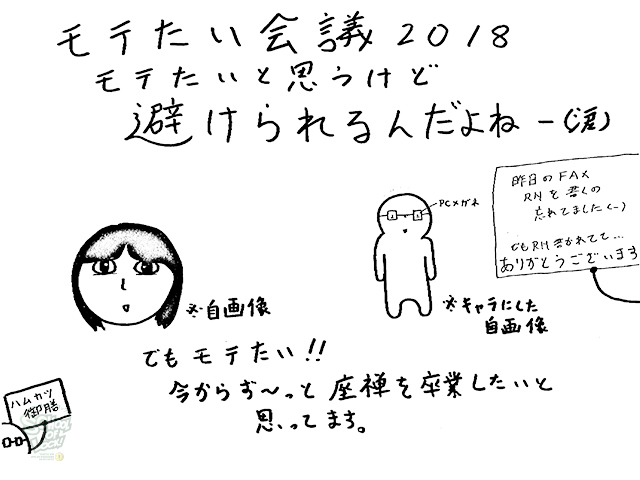 モテたい会議2018
モテたいと思うけど
避けられるんだよねー(涙)
PCメガネ
昨日のFAX
RNを書くの
忘れてました(--)
でもRN書かれてて...
ありがとうございます
※自画像
※キャラにした
自画像
でもモテたい!!
今からず〜っと座禅を卒業したいと
思ってます。
ハムカツ
御膳